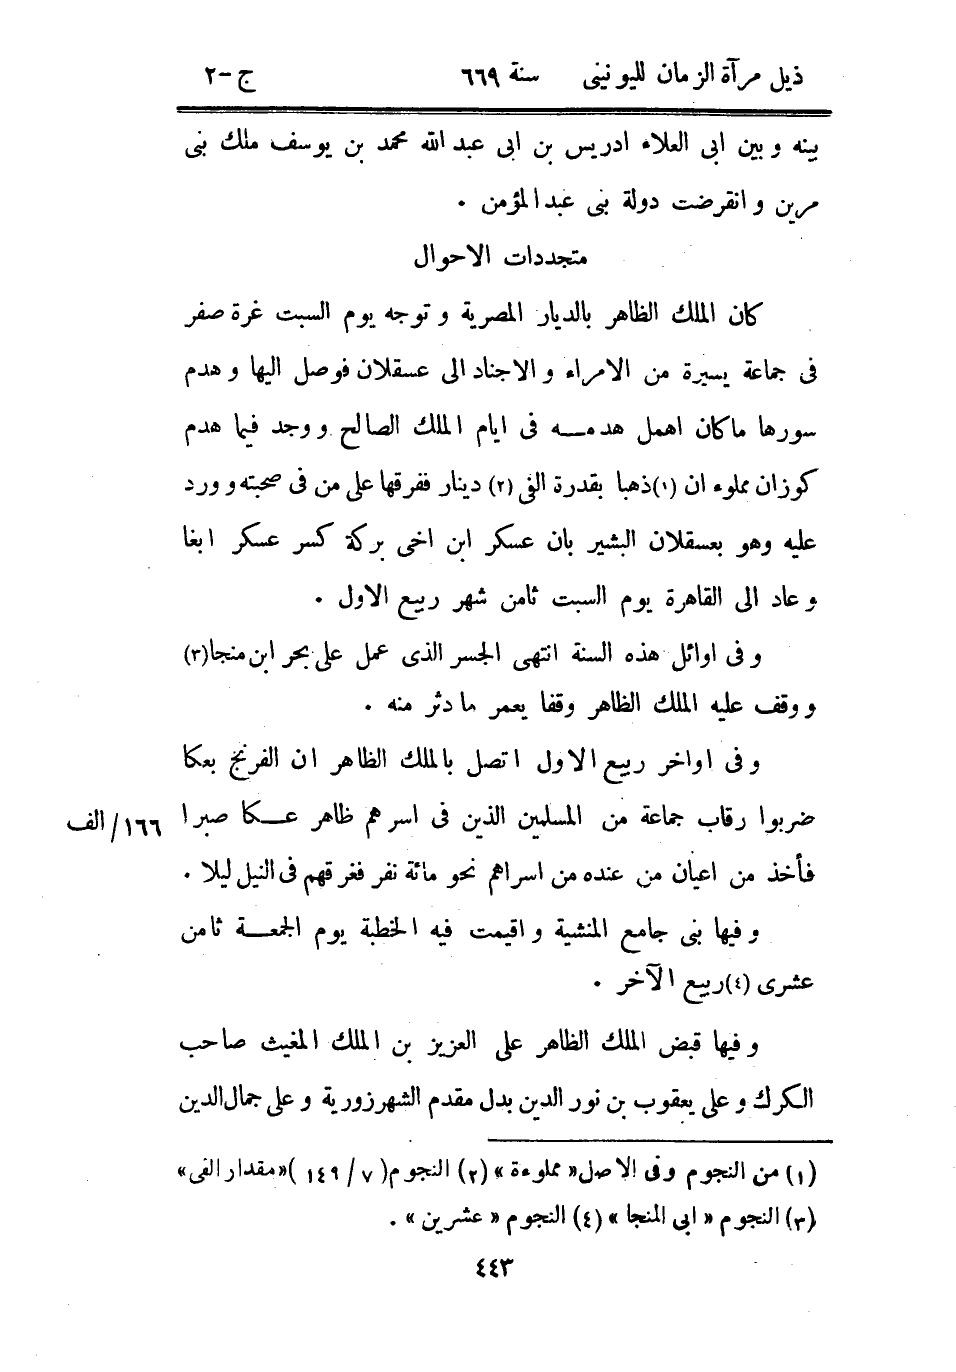 ذيل مرآة الزمان لليونينى سنة ٦٦٩ ج-٢
بينه و بين ابى العلاء ادريس بن ابى عبد الله محمد بن يوسف ملك بنى
مرين و انقرضت دولة بنى عبد المؤمن .
متجددات الاحوال
كان الملك الظاهر بالديار المصرية و توجه يوم السبت غرة صفر
فى جماعة يسيرة من الامراء و الاجناد الى عسقلان فوصل اليها و هدم
سورها ماكان اهمل هدمـــه فى ايام الملك الصالح و وجد فيما هدم
كوزان مملوء ان (١) ذهبا بقدرة الفى (٢) دينار ففرقها على من فى صحبته و ورد
عليه وهو بعسقلان البشير بان عسكر ابن اخى بركة كسر عسكر ابغا
و عاد الى القاهرة يوم السبت ثامن شهر ربيع الاول .
و فى اوائل هذه السنة انتهى الجسر الذى عمل على بحر ابن منجا (٣)
و وقف عليه الملك الظاهر وقفا يعمر ما دثر منه .
و فى اواخر ربيع الاول اتصل بالملك الظاهر ان الفرنج بعكا
ضربوا رقاب جماعة من المسلمين الذين فى اسرهم ظاهر عـــكا صبرا ١٦٦/الف
فأخذ من اعيان من عنده من اسراهم نحو مائة نفر فغرقهم فى النيل ليلا .
و فيها بنى جامع المنشية و اقيمت فيه الخطبة يوم الجمعـــة ثامن
عشرى (٤) ربيع الآخر .
و فيها قبض الملك الظاهر على العزيز بن الملك المغيث صاحب
الكرك و على يعقوب بن نور الدين بدل مقدم الشهرزورية و على جمال الدين
(١) من النجوم وفى الاصل « مملوءة » (٢) النجوم (٧ / ١٤٩) « مقدار الفى »
(٣) النجوم « ابى المنجا » (٤) النجوم « عشرين » .
٤٤٣